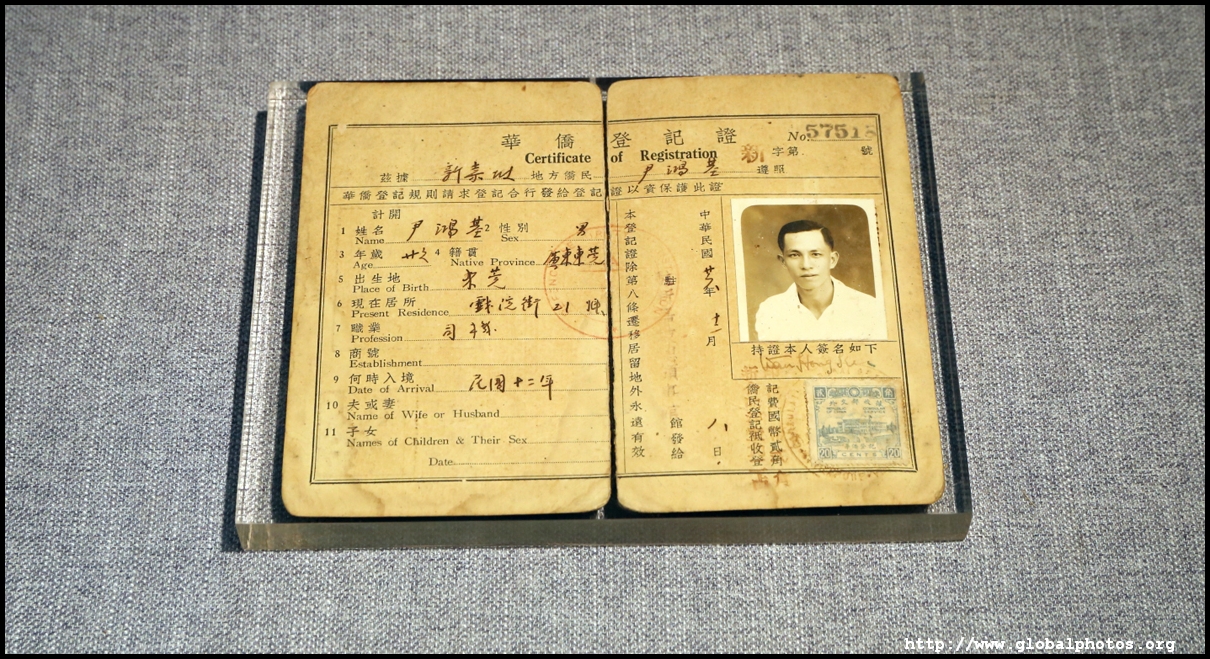 華僑登記證
No. 5751
Certificate of Registration
新 字第 號
茲據 新嘉坡 地方僑民 尹鴻基 遵照
華僑登記規則請求登記合行發給登記證以資保護此證
計開
1 姓名 尹鴻基 2 性別 男
Name Sex
3 年歲 4 籍貫 廣東東莞
Age Native Province
5 出生地 東莞
Place of Birth
6 現在居所 街 21 號
Present Residence
7 職業 司機
Profession
8 商號
Establishment
9 何時入境 民國十二年
Date of Arrival
10 夫或妻
Name of Wife or Husband
11 子女
Names of Children & Their Sex
Date
本登記證除第八條遷移居留地外永遠有效
中華民國 年 十二月 八日
駐 館發給
持證本人簽名如下
記費國幣貳
僑民登記 收登
貳 貳
20 CENTS 20
http://www.globalphotos.org